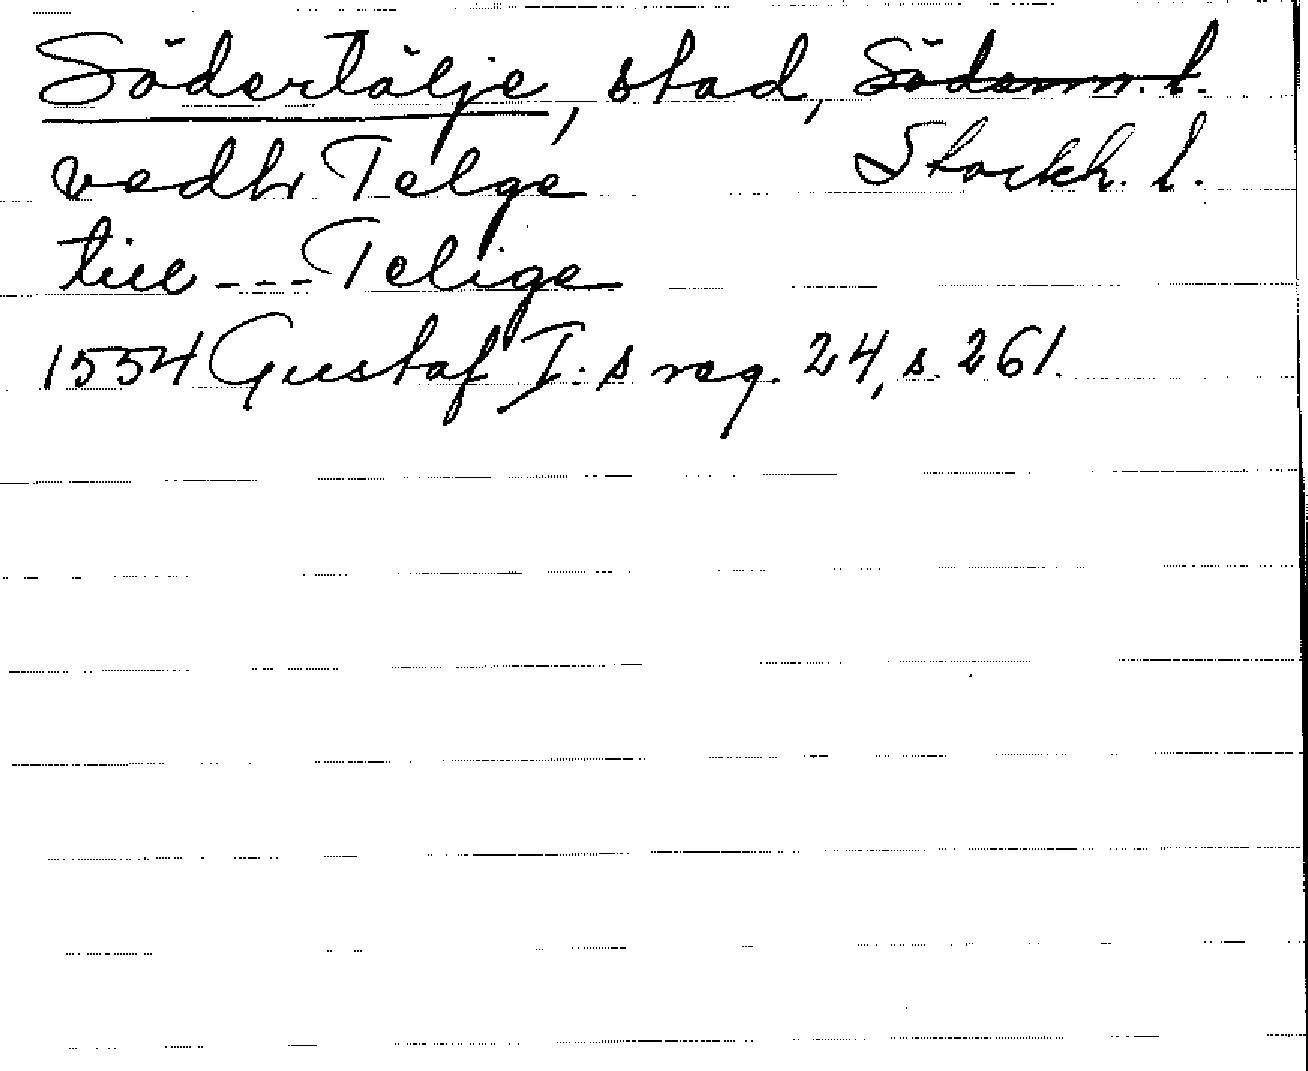 Södertälje, stad, Söderm. l.
Stockh. l.
vedh Telge
till --- Telige
1554 Gustaf I:s reg. 24, s. 261.